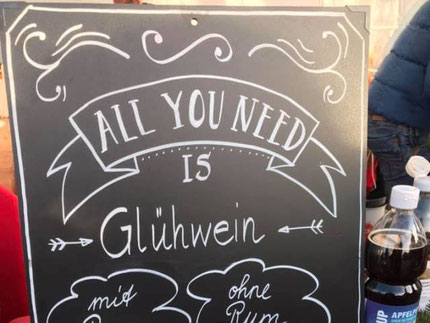 ALL YOU NEED
IS
Glühwein
mit
ohne
Rum
UP
APFELP